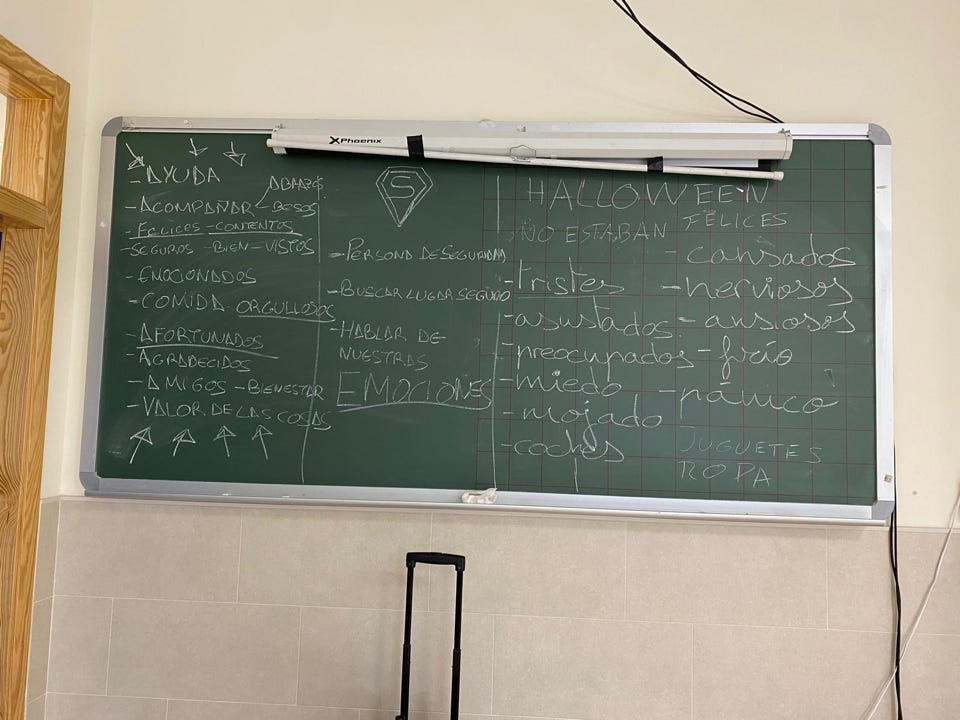 XPhoenix
- AYUDA
- ACOMPAÑAR
ABRAZOS
BESOS
- FELICES - CONTENTOS
- SEGUROS - BIEN - VISTOS
- EMOCIONADOS
- COMIDA - ORGULLOSOS
- AFORTUNADOS
- AGRADECIDOS
- AMIGOS - BIENESTAR
- VALOR DE LAS COSAS
S
- PERSONA DE SEGURIDAD
- BUSCAR LUGAR SEGURO
- HABLAR DE
NUESTRAS
EMOCIONES
HALLOWEEN
NO ESTABAN FELICES
- tristes
- asustados
- preocupados
- miedo
- mojado
- coches
- cansados
- nerviosos
- ansiosos
- frío
- pánico
JUGUETES
ROPA